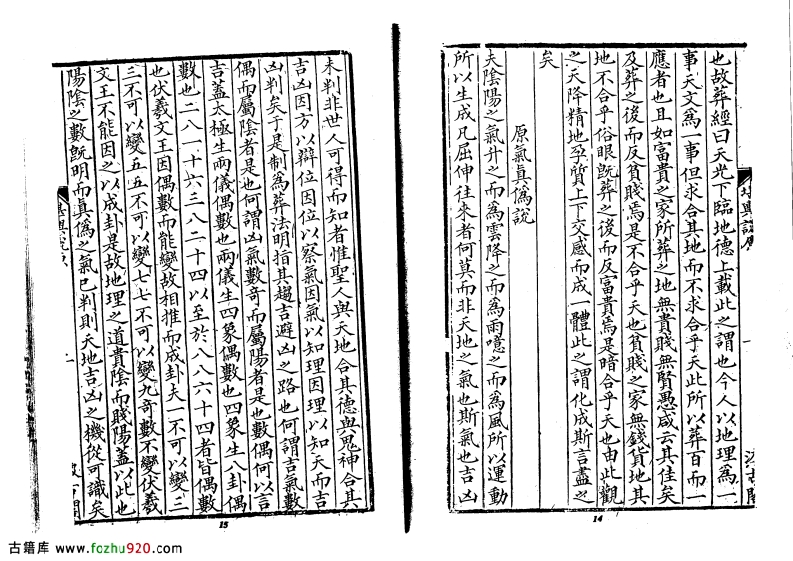 也故葬經曰天光下臨地德上載此之謂也今人以地理為一
事天文為一事但求合其地而不求合乎天此所以葬百而一
應者也且如富貴之家所葬之地無貴賤無賢愚咸云其佳矣
及葬之後而反貧賤焉是不合乎天也貧賤之家無錢貨地其
地不合乎俗眼既葬之後而反富貴焉是暗合乎天也由此觀
之天降精地孕質上下交感而成一體此之謂化成斯言盡之
矣
原氣真偽說
夫陰陽之氣升之而為雲降之而為雨噫之而為風所以運動
所以生成凡屈伸往來者何莫而非天地之氣也斯氣也吉凶
14
未判非世人可得而知者惟聖人與天地合其德與鬼神合其
吉凶因方以辯位因位以察氣因氣以知理因理以知天而吉
凶判矣于是制為葬法明指其趨吉避凶之路也何謂吉氣數
偶而屬陰者是也何謂凶氣數奇而屬陽者是也數偶何以言
吉蓋太極生兩儀偶數也兩儀生四象偶數也四象生八卦偶
數也二八一十六三八二十四以至於八八六十四者皆偶數
也伏羲文王因偶數而能變故相推而成卦夫一不可以變三
三不可以變五五不可以變七七不可以變九奇數不變伏羲
文王不能因之以成卦是故地理之道貴陰而賤陽蓋以此也
陽陰之數既明而真偽之氣已判則天地吉凶之機從可識矣
15
古籍库 www.fozhu920.com